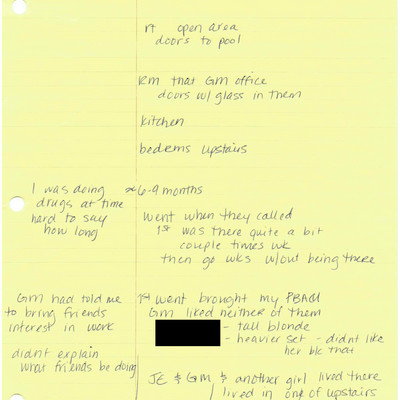 rt open area
doors to pool
rem that GM office
doors w/ glass in them
kitchen
bedrms upstairs
I was doing
drugs at time
hard to say
how long
≈ 6-9 months
went when they called
1st was there quite a bit
couple times wk
then go wks w/out being there
GM had told me
to bring friends
interest in work
didnt explain
what friends be doing
1st went brought my
GM liked neither of them
- tall blonde
- heavier set - didnt like
her b/c that
JE & GM & another girl lived there
lived in one of upstairs